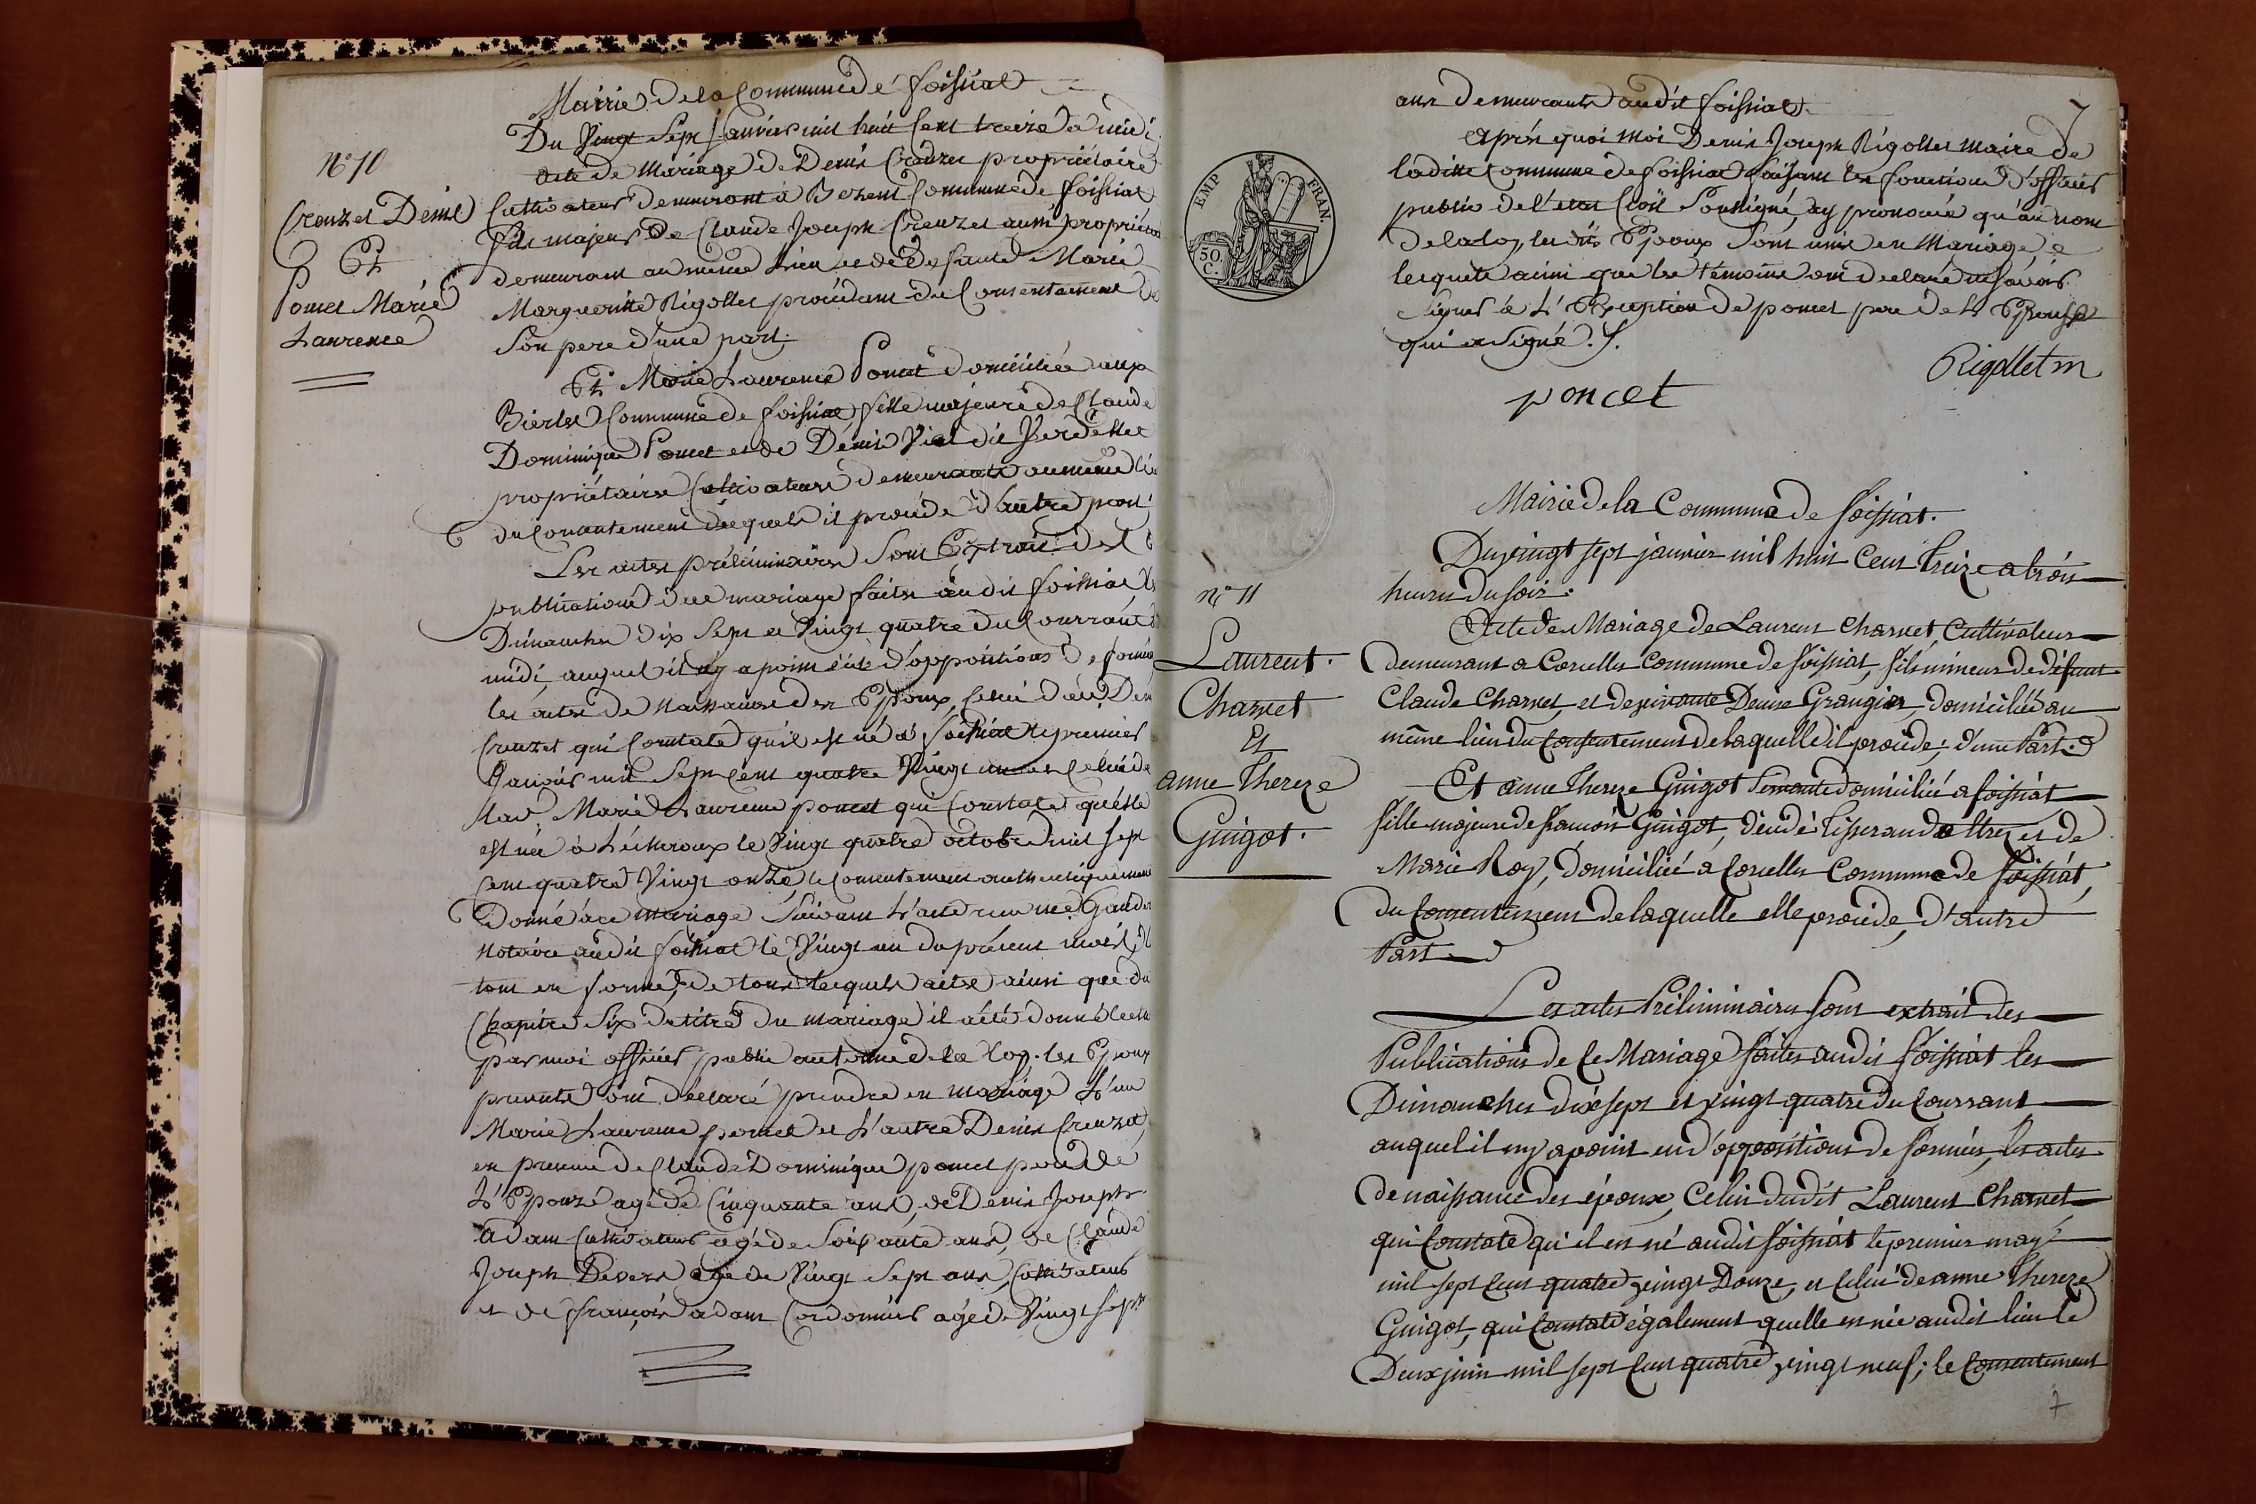 Mairie de la Commune de foissiat
Du Vingt Sept janvier mil huit Cent treize a midi
N° 10
acte de mariage de Denis Creuzet propriétaire
Creuzet Denis
Cultivateur demeurant à Bezent Commune de foissiat
Et
fils majeur de Claude Joseph Creuzet aussi propriétaire
Poncet Marie
demeurant au même lieu et de défunte Marie
Laurence
Marguerite Rigollet procédant du Consentement de
Son pere d'une part.
Et Marie Laurence Poncet domiciliée aux
Bierles Commune de foissiat fille majeure de Claude
Dominique Poncet et de Denise Vial dit Verdellet
propriétaires Cultivateurs demeurants au même lieu
du Consentement desquels il procéde d'autre part
Les actes préliminaires Sont Extrait des
publications de ce mariage faites audit foissiat les
Dimanches dix Sept et Vingt quatre du Courrant
midi auquel il n'y a point eut d'oppositions de formées
les actes de Naissance des Epoux, Celui dud. Denis
Creuzet qui Constate qu'il est né à foissiat le premier
Janvier mil Sept Cent quatre Vingt un et Celui de
lad. Marie Laurence poncet qui Constate qu'elle
est née à Lescheroux le Vingt quatre octobre mil Sept
Cent quatre Vingt onze le Consentement authentiquement
Donné à ce mariage Suivant l'acte reçu me
notaire audit foissiat le Vingt un du présent mois,
tout en forme, de tous lesquels actes ainsi que du
Chapitre Six du titre du mariage il a été donné lecture
par moi officier public au terme de la loy. les Epoux
présents ont déclaré prendre en mariage L'un
Marie Laurence poncet et L'autre Denis Creuzet,
en presence de Claude Dominique poncet pere de
L'Epouse agé de Cinquante ans, de Denis Joseph
Adam Cultivateur agé de Soixante ans, de Claude
Joseph agé de Vingt Sept ans, Cultivateur
et de françois adam Cordonnier agé de Vingt Sept
ans demeurants audit foissiat.
7
Après quoi moi Denis Joseph Rigollet maire de
ladite Commune de foissiat faisant les fonctions d'officier
EMP FRAN.
50. C.
public de l'etat Civil Soussigné, ay prononcé qu'au nom
de la loy, les dits Epoux Sont unis en Mariage, e
lesquels ainsi que les témoins ont declaré ne Savoir
Signer à L'Exception de poncet pere de L'Epouse
qui a Signé. /.
Rigollet m
poncet
Mairie de la Commune de foissiat.
Du vingt sept janvier mil huit Cent treize a trois
heures du soir.
n° 11
Acte de Mariage de Laurent Charnet, Cultivateur
Laurent
demeurant a Corcelles Commune de foissiat, fils mineur de défunt
Charnet
Claude Charnet, et de vivante Denise Grangier, domiciliée au
Et
même lieu du Consentement de laquelle il procéde, d'une Part.
anne Thereze
Et anne Thereze Guigot Servante domiciliée a foissiat
Guigot.
fille majeure de françois Guigot, décédé Tisserand a Etrez et de
Marie Roy, domiciliée a Corcelles Commune de foissiat,
du Consentement de laquelle elle procéde, d'autre
Part
Les actes Préliminaires sont extrait des
Publications de Ce Mariage faites audit foissiat les
Dimanches dix sept et vingt quatre du Courrant
auquel il n'y a point eu d'oppositions de formées, les actes
de naissance des époux, Celui dudit Laurent Charnet,
qui Constate qu'il est né audit foissiat le premier may
mil sept Cent quatre vingt Douze, et Celui de anne Thereze
Guigot, qui Constate également quelle est née audit lieu le
Deux juin mil sept Cent quatre vingt neuf; le Consentement
7